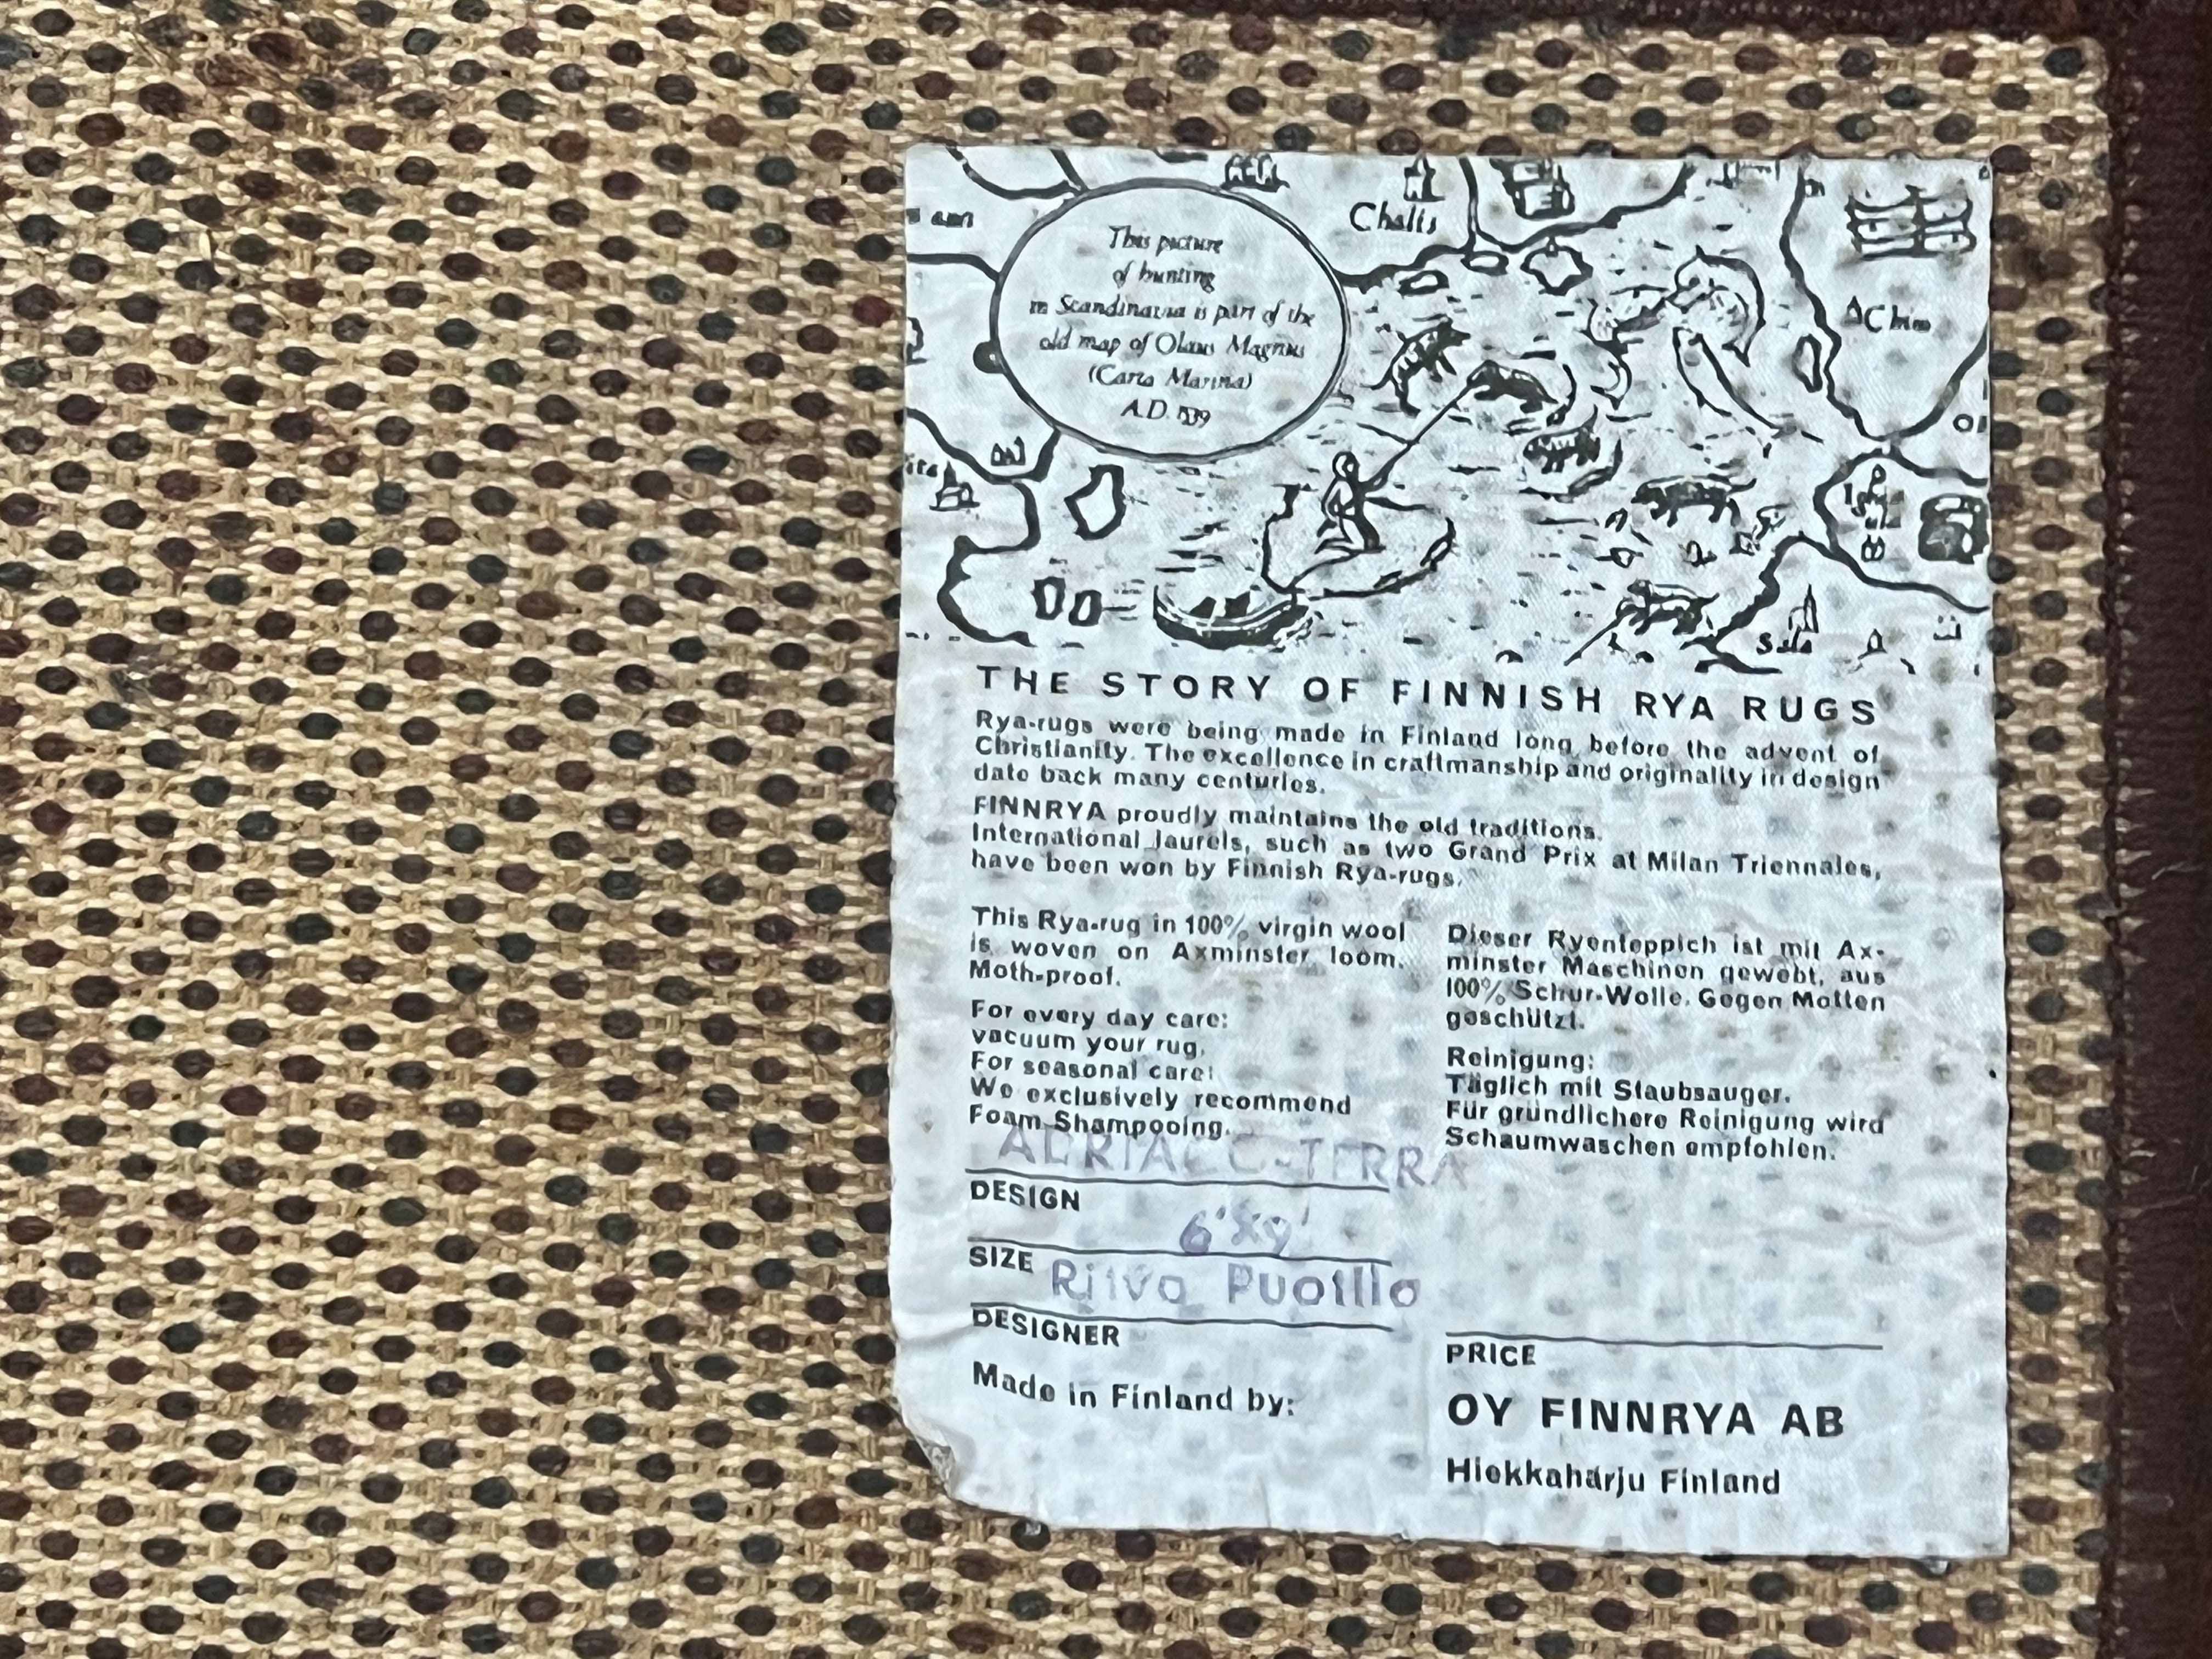 Chalis
This picture
of hunting
in Scandinavia is part of the
old map of Olaus Magnus
(Carta Marina)
A.D. 1539
Sala
THE STORY OF FINNISH RYA RUGS
Rya-rugs were being made in Finland long before the advent of
Christianity. The excellence in craftmanship and originality in design
date back many centuries.
FINNRYA proudly maintains the old traditions.
International laurels, such as two Grand Prix at Milan Triennales,
have been won by Finnish Rya-rugs.
This Rya-rug in 100% virgin wool
is woven on Axminster loom.
Moth-proof.
For every day care:
vacuum your rug.
For seasonal care:
We exclusively recommend
Foam Shampooing.
Dieser Ryenteppich ist mit Ax-
minster Maschinen gewebt, aus
100% Schur-Wolle. Gegen Motten
geschützt.
Reinigung:
Täglich mit Staubsauger.
Für gründlichere Reinigung wird
Schaumwaschen empfohlen.
DESIGN
6'x9'
SIZE
Ritva Puotila
DESIGNER
PRICE
Made in Finland by:
OY FINNRYA AB
Hiekkaharju Finland